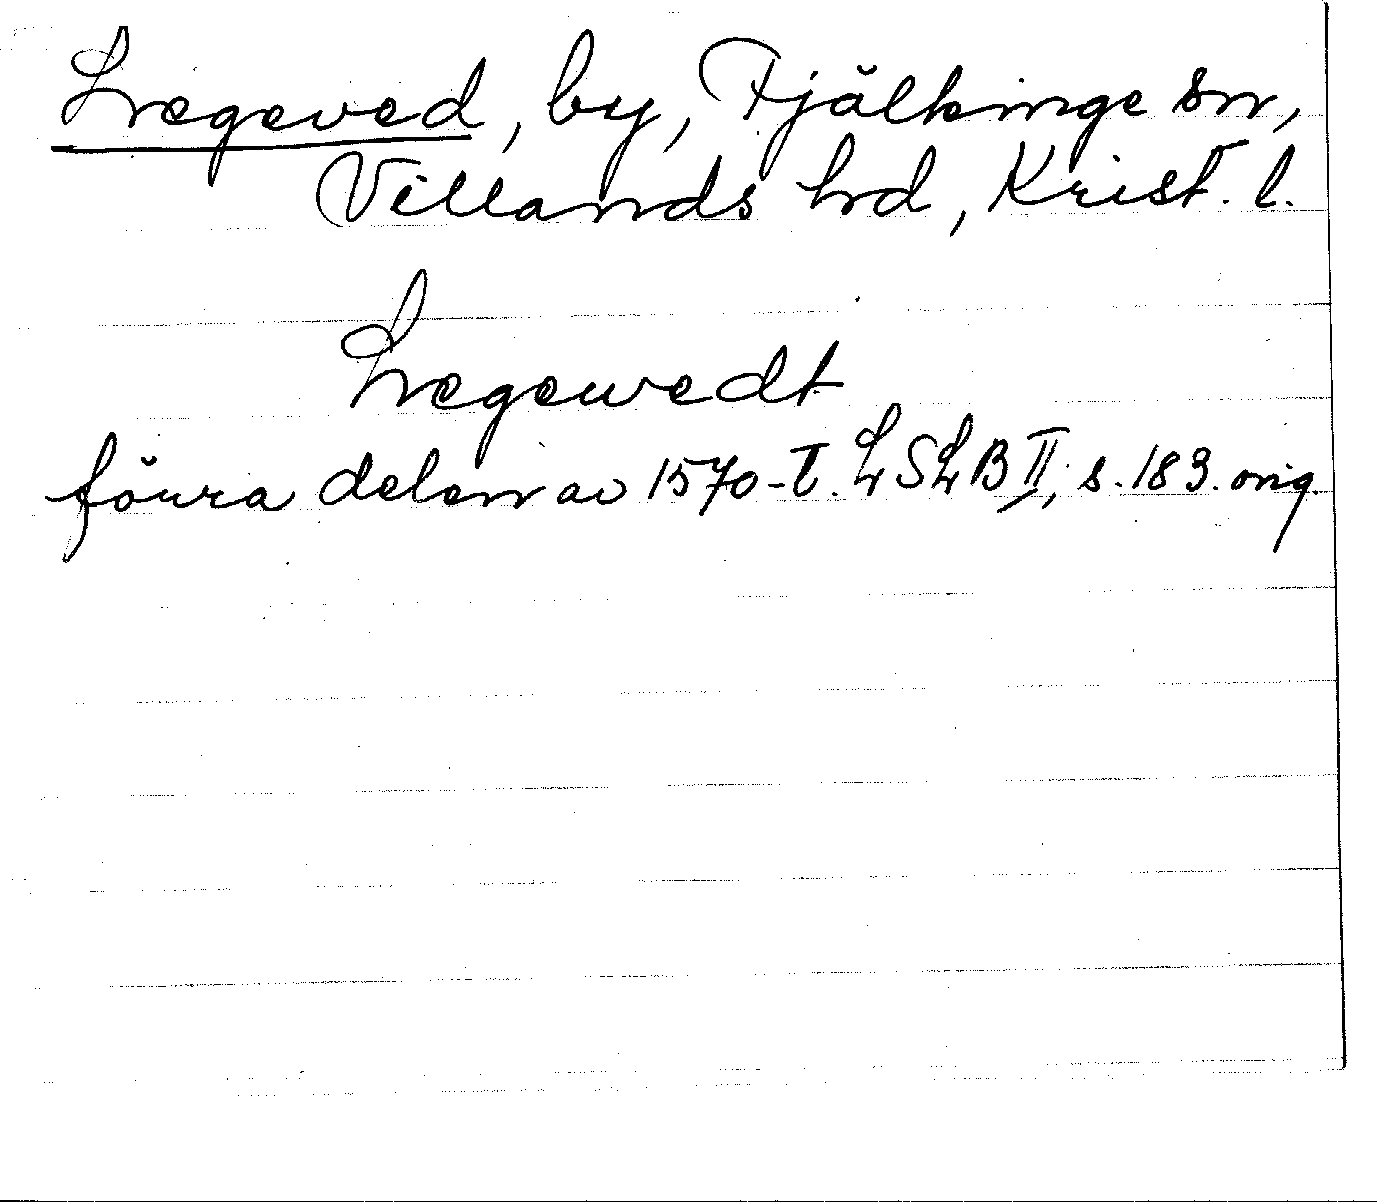 Legeved, by, Fjälkinge sn,
Villands hrd, Krist. l.
Legewedt
förra delen av 1570-t. LSLB II, s. 183. orig.